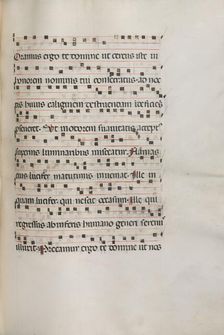 Oramus ergo te domine ut cereus iste in
honorem nominis tui consecratus ad noc
tis huius caliginem destruendam indeficiens
perseveret. Et in odorem suavitatis acceptus
supernis luminaribus misceatur. Flammas
eius lucifer matutinus inveniat. Ille in
quam lucifer qui nescit occasum. Ille qui
regressus ab inferis humano generi serenus
illuxit. Precamur ergo te domine ut nos